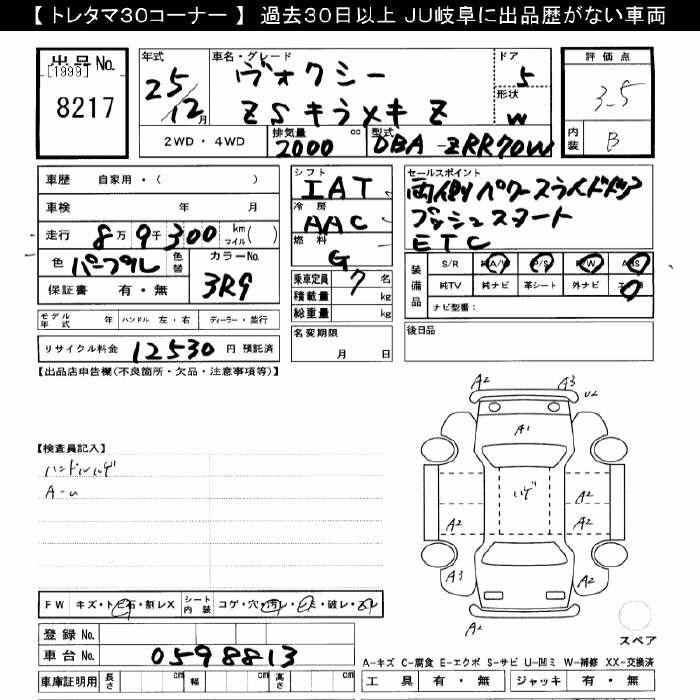 【 トレタマ30コーナー 】 過去30日以上 JU岐阜に出品歴がない車両
出品 No.
[1999]
8217
年式
25
12月
車名・グレード
ヴォクシー
ZSキラメキ Z
ドア
5
形状
W
2WD ・ 4WD
排気量
2000 cc
型式
DBA-ZRR70W
評価点
3.5
内装
B
車歴 自家用・( )
車検 年 月
走行 8万 9千 300 km マイル ( )
色 パープル 色替 カラーNo. 3R9
保証書 有・無
シフト
IAT
冷房
AAC
燃料
G
乗車定員 7 名
積載量 kg
総重量 kg
セールスポイント
両側パワースライドドア
プッシュスタート
ETC
装備品
S/R 純A/W P/S P/W ABS
純TV 純ナビ 革シート 外ナビ
ナビ型番:
モデル年式 年 ハンドル 左・右 ディーラー・並行
名変期限
月 日
後日品
リサイクル料金 12530 円 預託済
【出品店申告欄(不良箇所・欠品・注意事項等)】
【検査員記入】
ハンドルハゲ
A-U
A2 A3
U2
A1
ハゲ
A2 A2
A2
A3 A2
A2
スペア
FW キズ・トビ石・割レX シート内装 コゲ・穴・汚レ・シミ・破レ・スレ
登録 No.
車台 No. 0598813
A-キズ C-腐食 E-エクボ S-サビ U-凹ミ W-補修 XX-交換済
車庫証明用 長さ cm 幅 cm 高さ cm
工具 有・無 ジャッキ 有・無